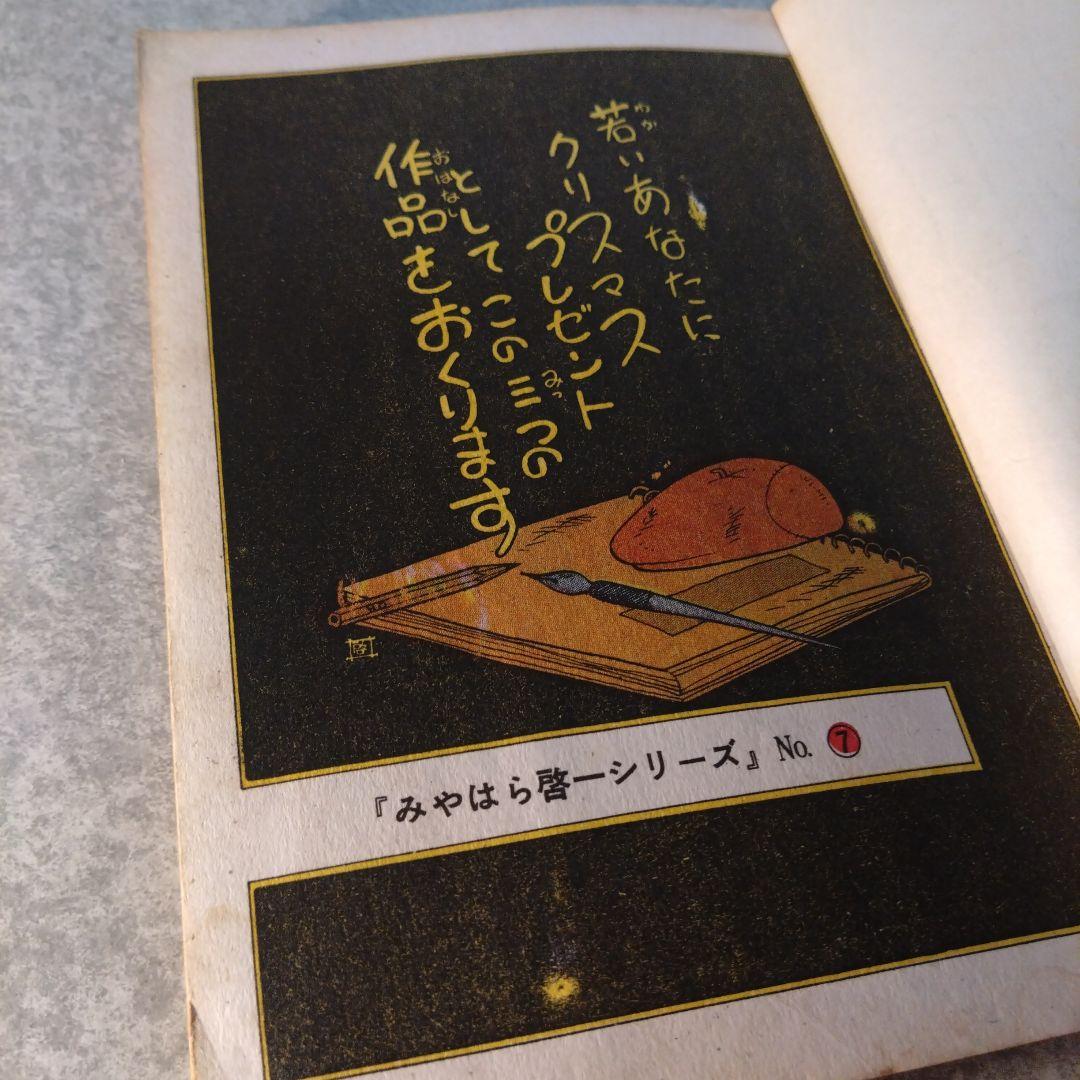 若いあなたに
クリスマス
プレゼント
としてこの三つの
作品をおくります
わか
みっ
おはなし
『みやはら啓一シリーズ』No. 7